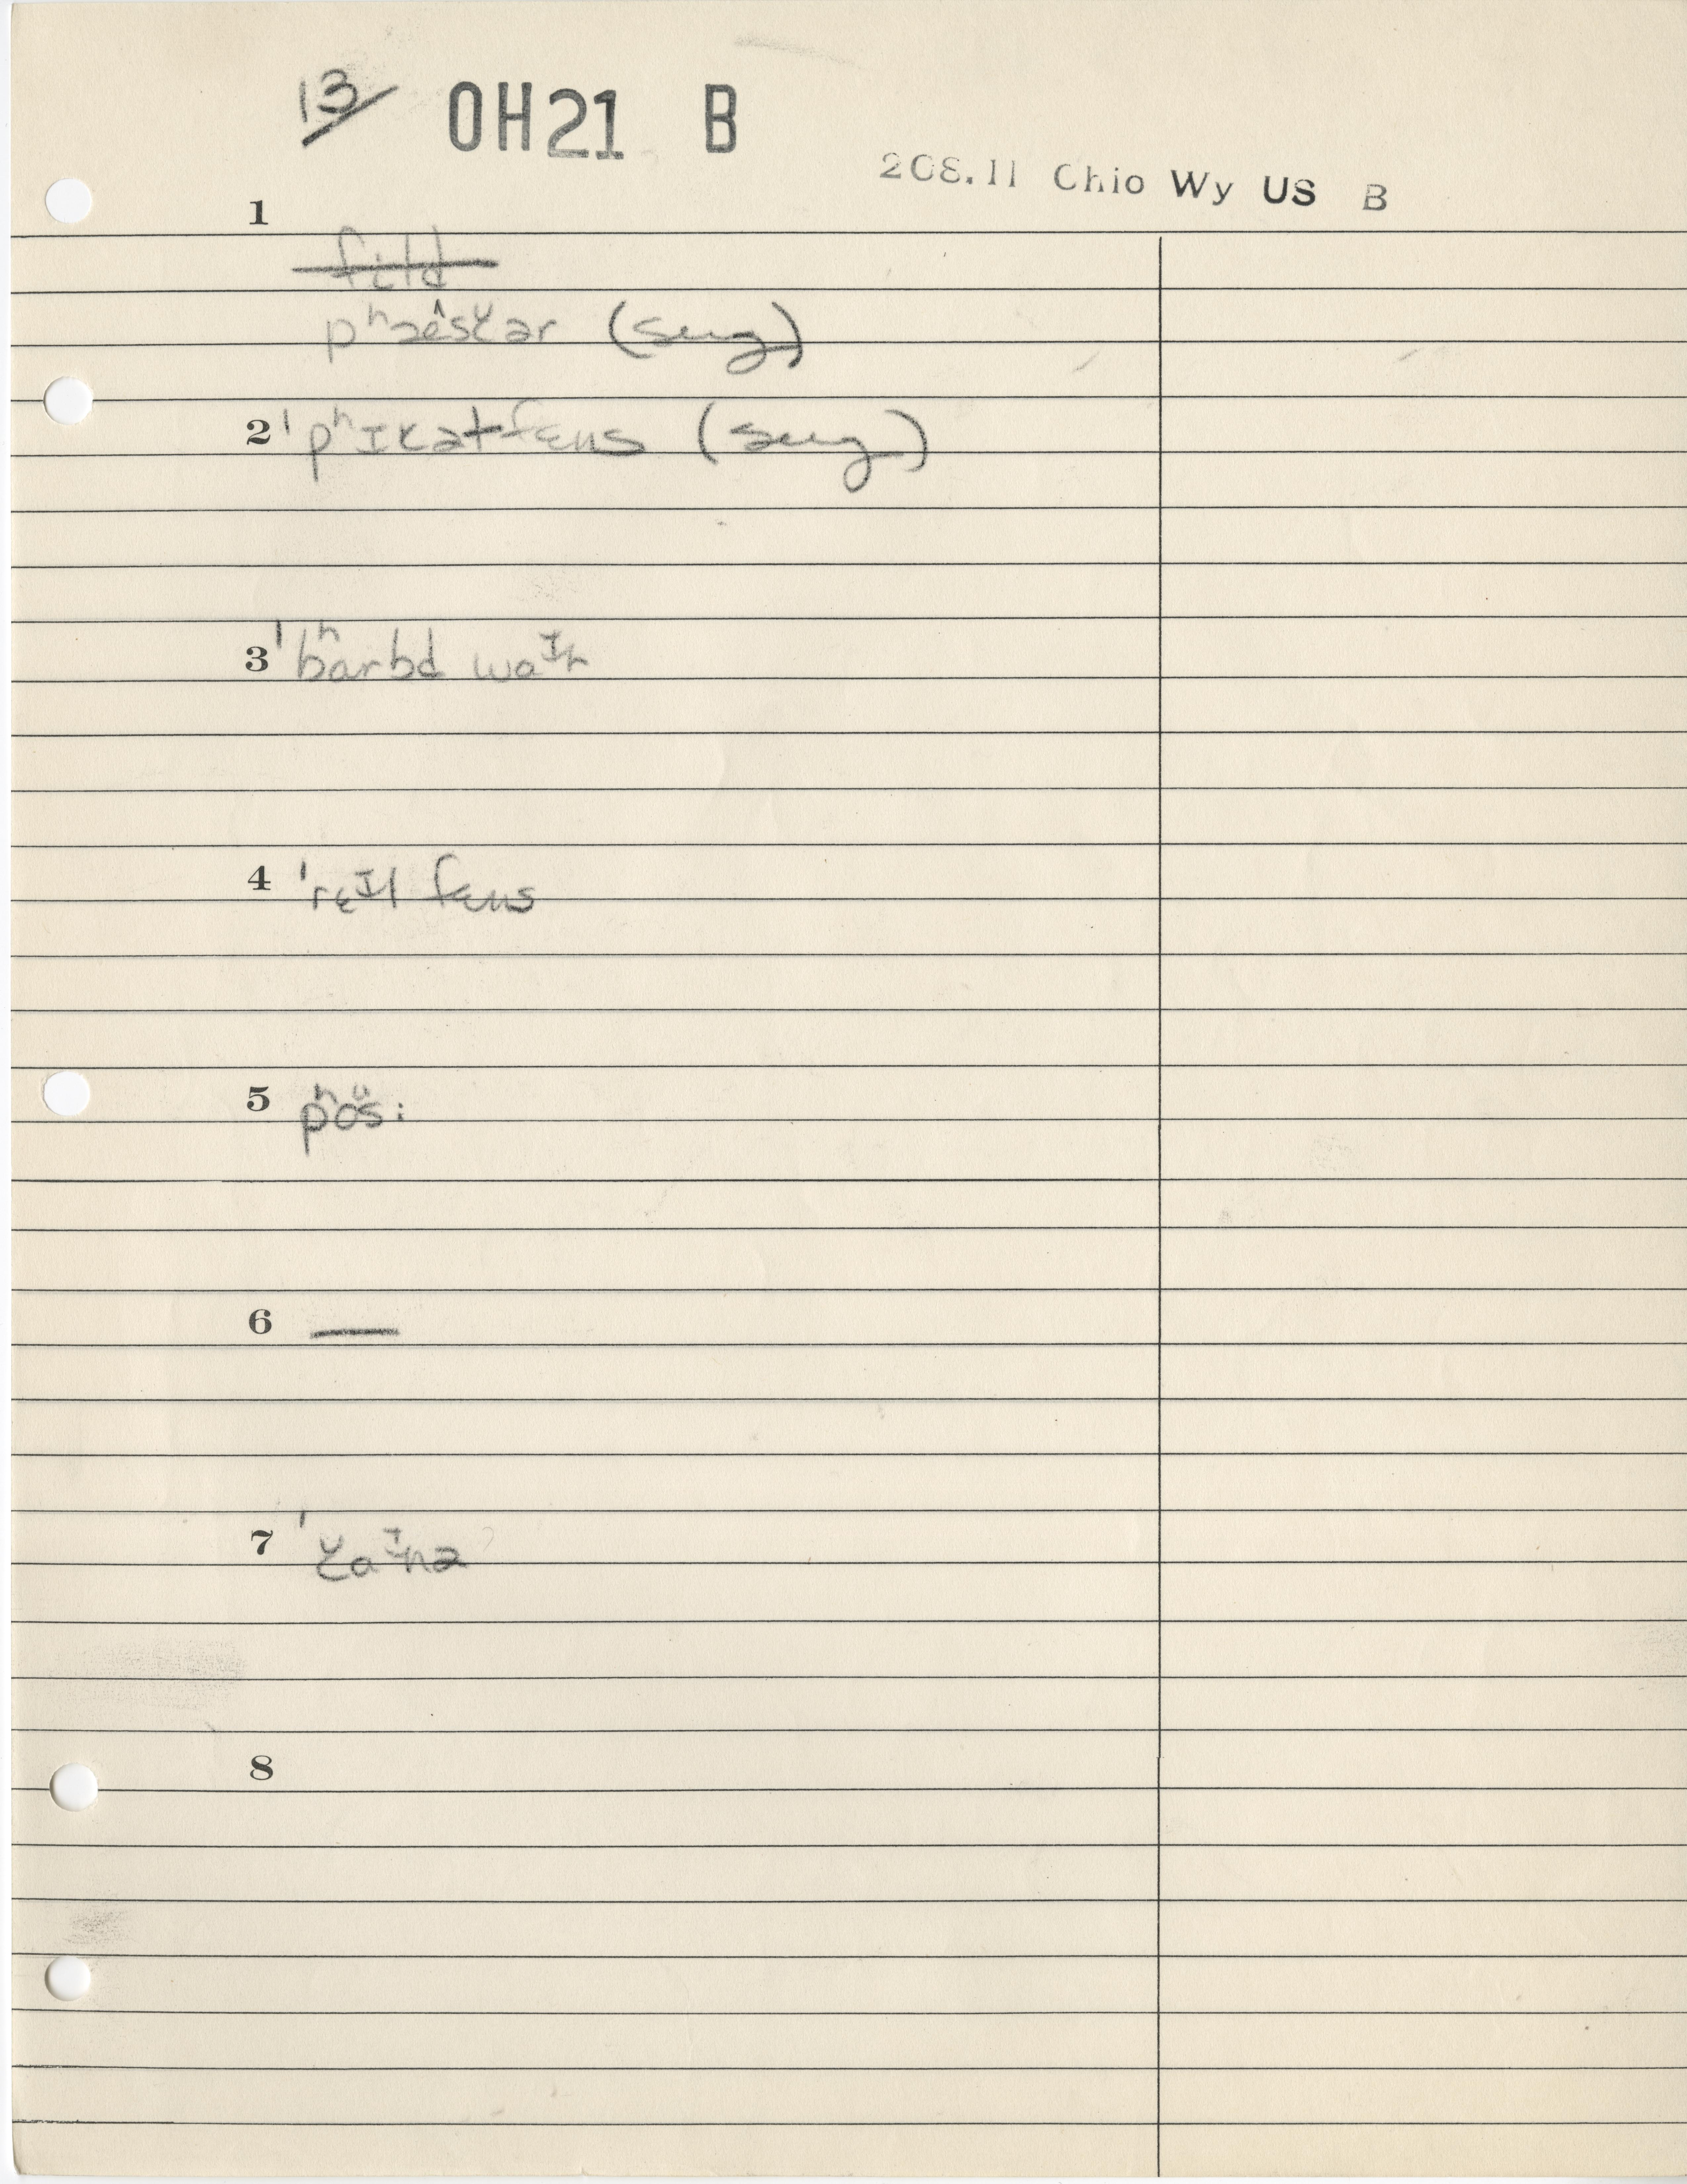 13/ OH21 B
208.11 Ohio Wy US B
1
f i l d
pʰæ̂stʸər (sug)
2 ˈpʰɪkətfɛns (sug)
3 ˈbʰarbd waᴵr
4 ˈrɛᴵl fɛns
5 pʰoᵘs:
6 —
7 ˈtʸaᴵnə
8